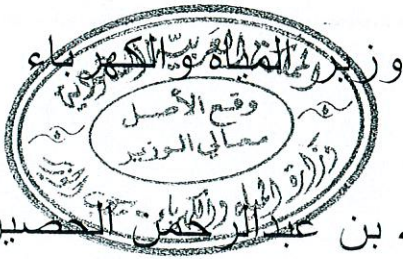 وزير المياه والكهرباء
المملكة العربية السعودية
وقع الأصل
معالي الوزير
وزارة المياه والكهرباء
بن عبدالرحمن الحصين